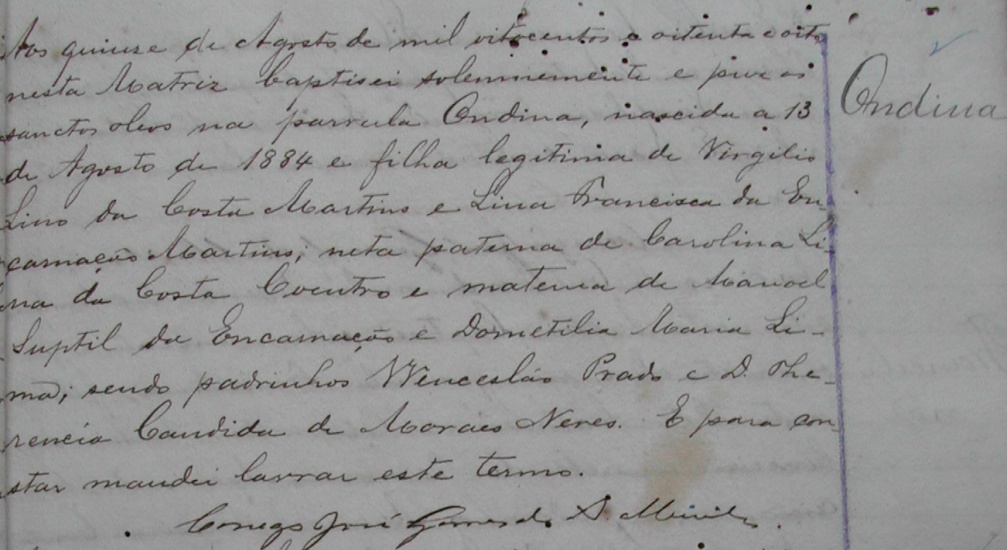 Aos quinse de Agosto de mil oitocentos e oitenta e oito
nesta Matriz baptisei solennemente e puz os
sanctos oleos na parvula Ondina, nascida a 13
Ondina
de Agosto de 1884 e filha legitima de Virgilio
Lino da Costa Martins e Lina Francisca da En-
carnação Martins; neta paterna de Carolina Li-
na da Costa Coentro e materna de Manoel
Suptil da Encarnação e Dometilia Maria Li-
ma; sendo padrinhos Wenceslão Prado e D. The-
rencia Candida de Moraes Neres. E para con-
star mandei lavrar este termo.
Conego José Gomes de